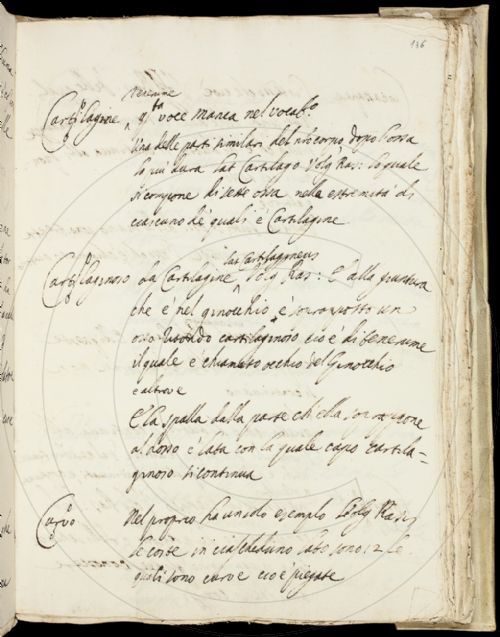 136
nerenine
Cartilagine qta voce manca nel vocabo.
Una delle parti similari del nro corpo dopo l'ossa
la più dura lat Cartilago Volg Ras: la quale
si congione di sette ossa nella estremità di
ciascuno de quali è Cartilagine
lat Cartilagineus
Cartilaginoso da Cartilagine Volg Ras: E alla giuntura
che è nel ginocchio è sopraposto un
osso Rotondo cartilaginoso cioè di tenerume
il quale è chiamato occhio del Ginocchio
e altrove
E la spalla dalla parte ch ella sopraggone
al dosso è lata con la quale capo cartila=
ginoso si continua
Curvo Nel proprio ha un solo esempio Volg Ras:
le coste in ciascheduno lato sono 12 le
quali sono curve cioè piegate